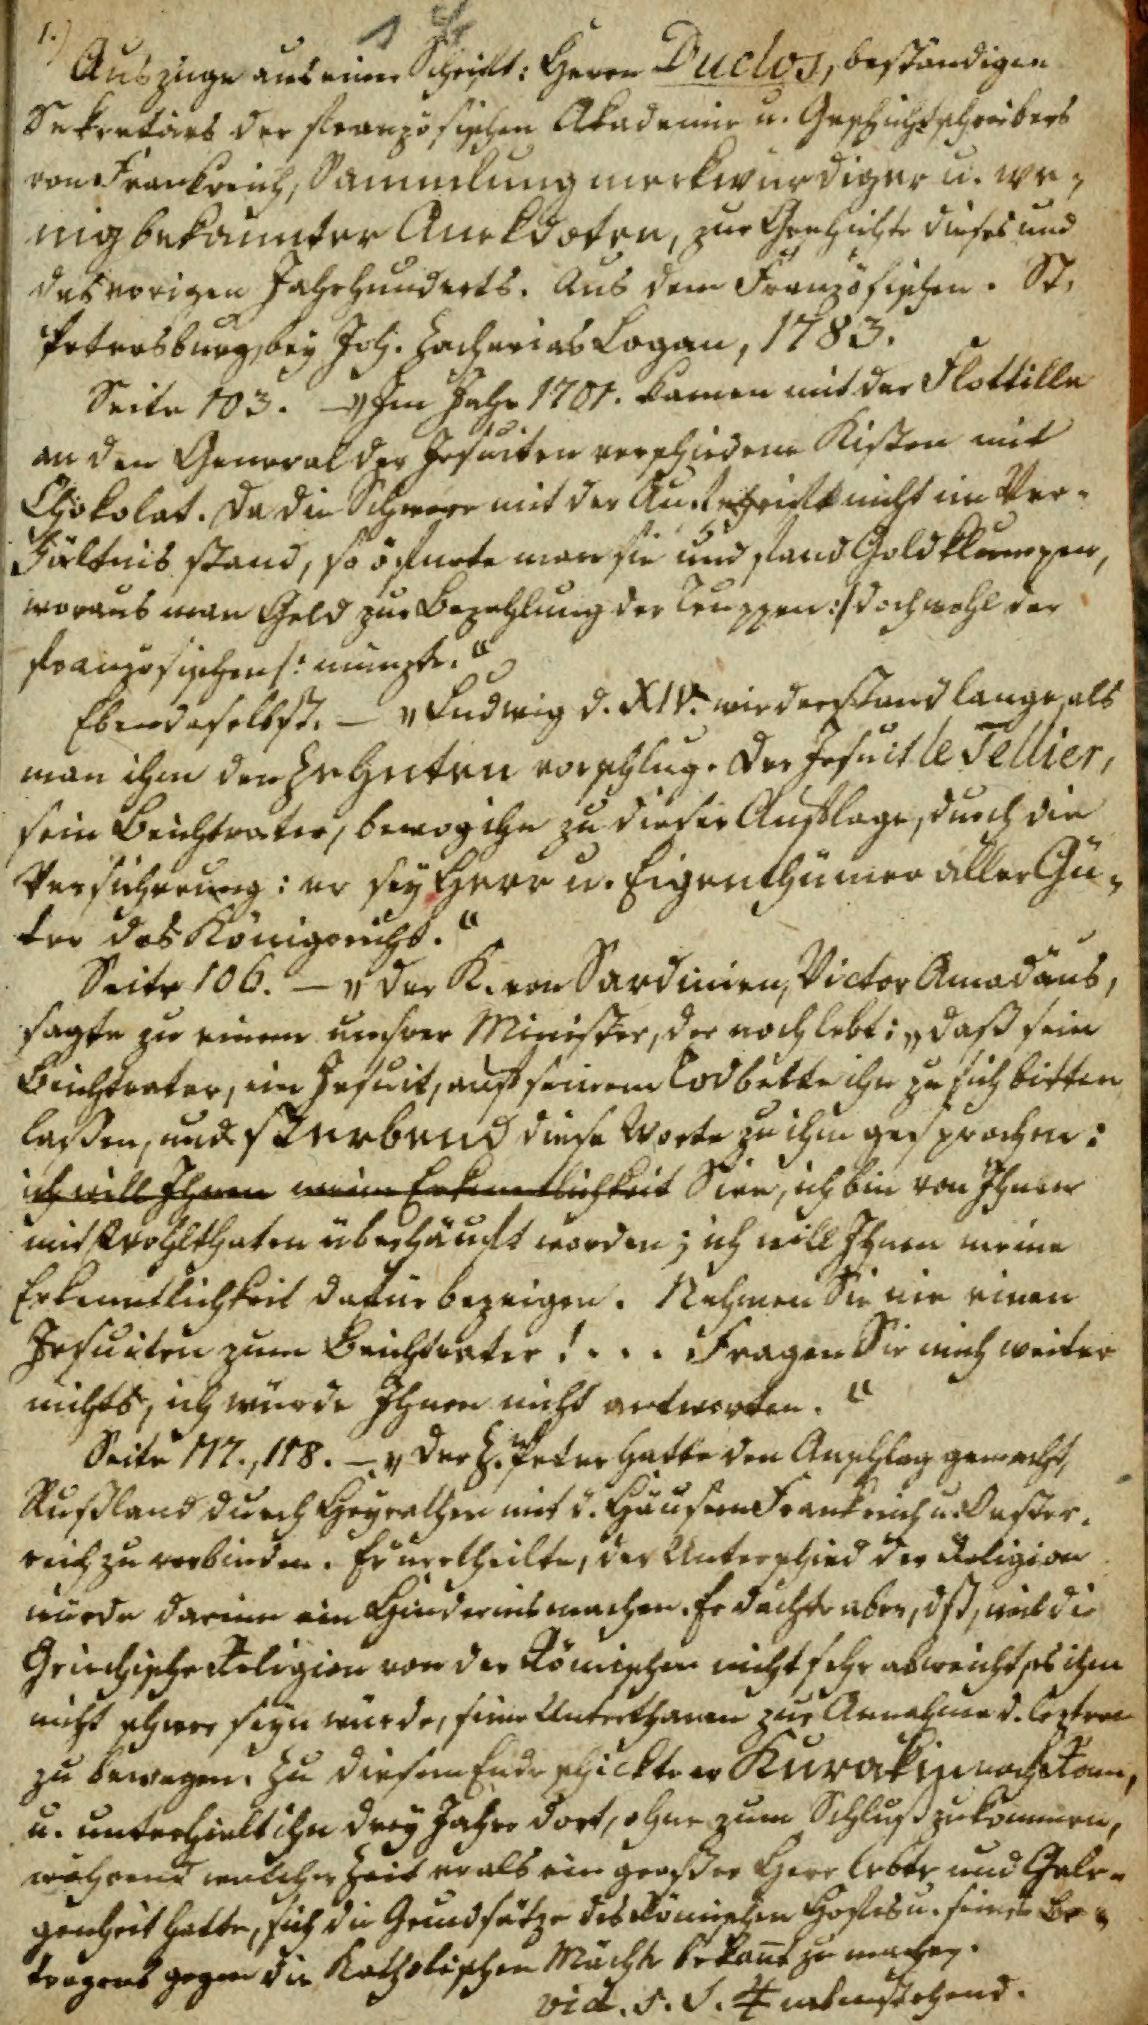 1.)
Auszüge aus einer Schrift: Herrn Duclos, beständigen
Sekretärs der französischen Akademie u. Geschichtschreibers
von Frankreich, Sammlung merkwürdiger u. we-
nig bekannter Anekdoten, zur Geschichte dieses und
des vorigen Jahrhunderts. Aus dem Französischen. St.
Petersburg, bey Joh. Zacharias Logan, 1783.
Seite 103. – „Im Jahr 1701. kamen mit der Flottille
an den General der Jesuiten verschiedene Kisten mit
Chokolat. Da die Schwere mit der Aufschrift nicht im Ver-
hältnis stand, so öfnete man sie und fand Goldklumpen,
woraus man Geld zur Bezahlung der Truppen :/ doch wohl der
französischen /: münzte.“
Ebendaselbst. – „Ludwig d. XIV. wiederstand lange, als
man ihm den Zehnten vorschlug. Der Jesuit le Tellier,
sein Beichtvater, bewog ihn zu dieser Auflage, durch die
Versicherung: er sey Herr u. Eigenthümer aller Gü-
ter des Königreichs.“
Seite 106. – „Der K. von Sardinien, Victor Amadäus,
sagte zu einem unsrer Minister, der noch lebt: „daß sein
Beichtvater, ein Jesuit, auf seinem Todbette ihn zu sich bitten
lassen, und sterbend diese Worte zu ihm gesprochen:
ich will Ihnen meine Erkenntlichkeit Sire, ich bin von Ihnen
mit Wohlthaten überhäuft worden; ich will Ihnen meine
Erkenntlichkeit dafür bezeigen. Nehmen Sie nie einen
Jesuiten zum Beichtvater! . . . Fragen Sie mich weiter
nichts, ich würde Ihnen nicht antworten.“
Seite 117., 118. – „Der Z. Peter hatte den Anschlag gemacht,
Rußland durch Heyrathen mit d. Häusern Frankreich u. Oester-
reich zu verbinden. Er urtheilte, der Unterschied der Religion
würde darinn ein Hindernis machen. Er dachte aber, dß, weil die
Griechische Religion von der Römischen nicht sehr abweicht, es ihm
nicht schwer seyn würde, seine Unterthanen zur Annahme d. leztren
zu bewegen. Zu diesem Ende schickte er Kurakin nach Rom,
u. unterhielt ihn drey Jahre dort, ohne zum Schluß zu kommen,
während welcher Zeit er als ein großer Herr lebte und Gele-
genheit hatte, sich die Grundsätze des Römischen Hofes u. seines Be-
tragens gegen die Katholischen Mächte bekant zu machen.
vid. s. S. 4 nebenstehend.